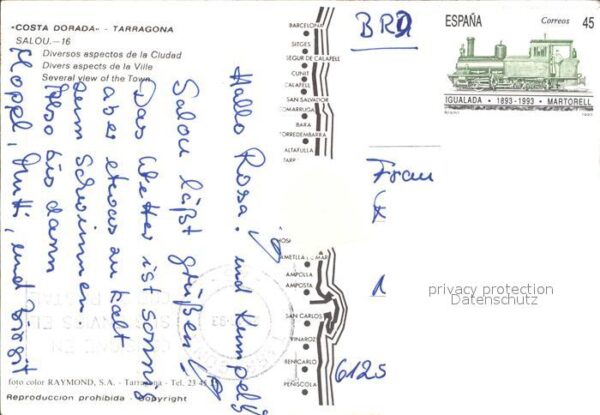 «COSTA DORADA» - TARRAGONA
SALOU.—16
Diversos aspectos de la Ciudad
Divers aspects de la Ville
Several view of the Town
Hallo Rosa! und
Salou läßt grüßen!
Das Wetter ist sonnig
aber etwas zu kalt
zum Schwimmen
Also bis dann
Moppel, Mutti, und Birgit
BARCELONA
SITGES
SEGUR DE CALAFELL
CUNIT
CALAFELL
SAN SALVADOR
COMARRUGA
BARA
TORREDEMBARRA
ALTAFULLA
TARR
AMETLLA DE MAR
AMPOLLA
AMPOSTA
SAN CARLOS
VINAROZ
BENICARLO
PEÑISCOLA
BRD
ESPAÑA Correos 45
IGUALADA · 1893-1993 · MARTORELL
Frau
6125
privacy protection
Datenschutz
foto color RAYMOND, S.A. - Tarragona - Tel. 23 45
Reproduccion prohibida - Copyright